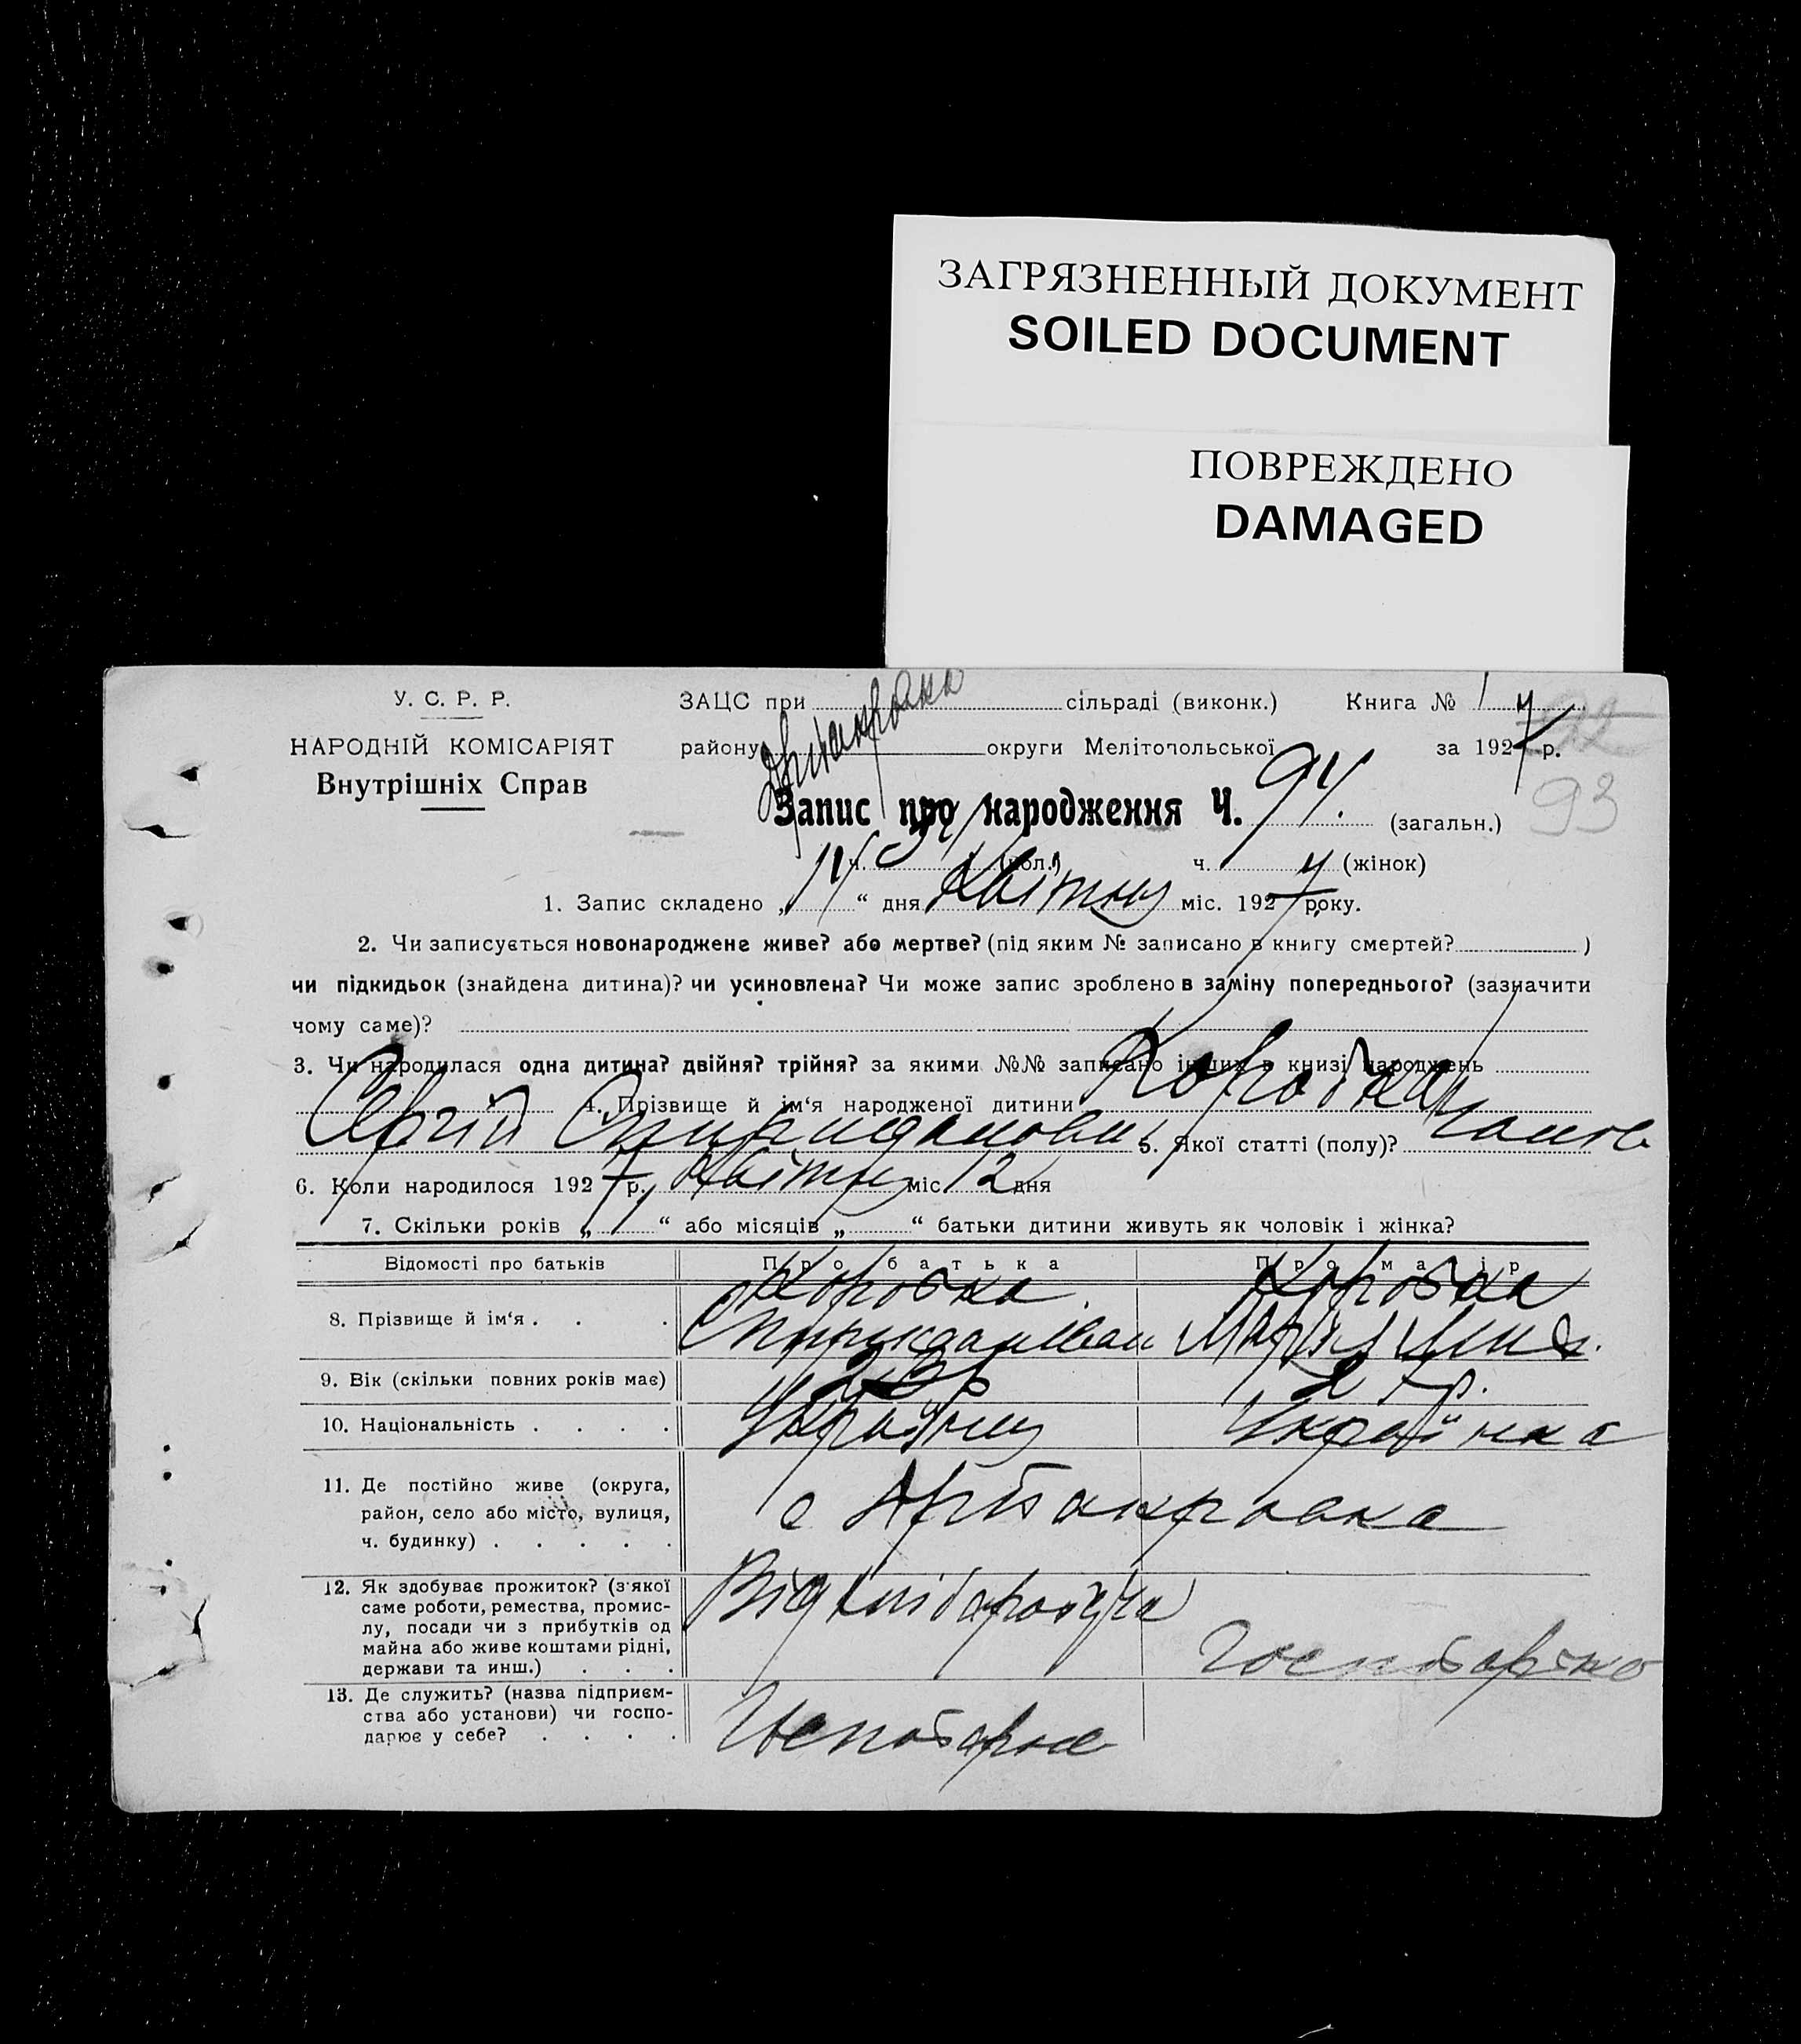 ЗАГРЯЗНЕННЫЙ ДОКУМЕНТ
SOILED DOCUMENT
ПОВРЕЖДЕНО
DAMAGED
У. С. Р. Р.
НАРОДНІЙ КОМІСАРІЯТ
Внутрішніх Справ
ЗАЦС при сільраді (виконк.) Книга №
району округи Мелітопольської за 1927 р.
93
Запис про народження Ч. 94. (загальн.)
ч. (чол.) ч. (жінок)
1. Запис складено „14“ дня Квітня міс. 1927 року.
2. Чи записується новонароджене живе? або мертве? (під яким № записано в книгу смертей? )
чи підкидьок (знайдена дитина)? чи усиновлена? Чи може запис зроблено в заміну попереднього? (зазначити
чому саме)?
3. Чи народилася одна дитина? двійня? трійня? за якими №№ записано інших в книзі народжень
4. Прізвище й ім‘я народженої дитини Коробка
Сергій 5. Якої статті (полу)?
6. Коли народилося 1927 р. Квітня міс. 12 дня
7. Скільки років „ “ або місяців „ “ батьки дитини живуть як чоловік і жінка?
Відомості про батьків Про батька Про матір
8. Прізвище й ім‘я . . . Коробка Коробка
Марія
9. Вік (скільки повних років має)
10. Національність . . . . Українц Українка
11. Де постійно живе (округа,
район, село або місто, вулиця,
ч. будинку) . . . . .
12. Як здобуває прожиток? (з якої
саме роботи, ремества, промис-
лу, посади чи з прибутків од
майна або живе коштами рідні,
держави та инш.) . . .
13. Де служить? (назва підприєм-
ства або установи) чи госпо-
дарює у себе? . . . .